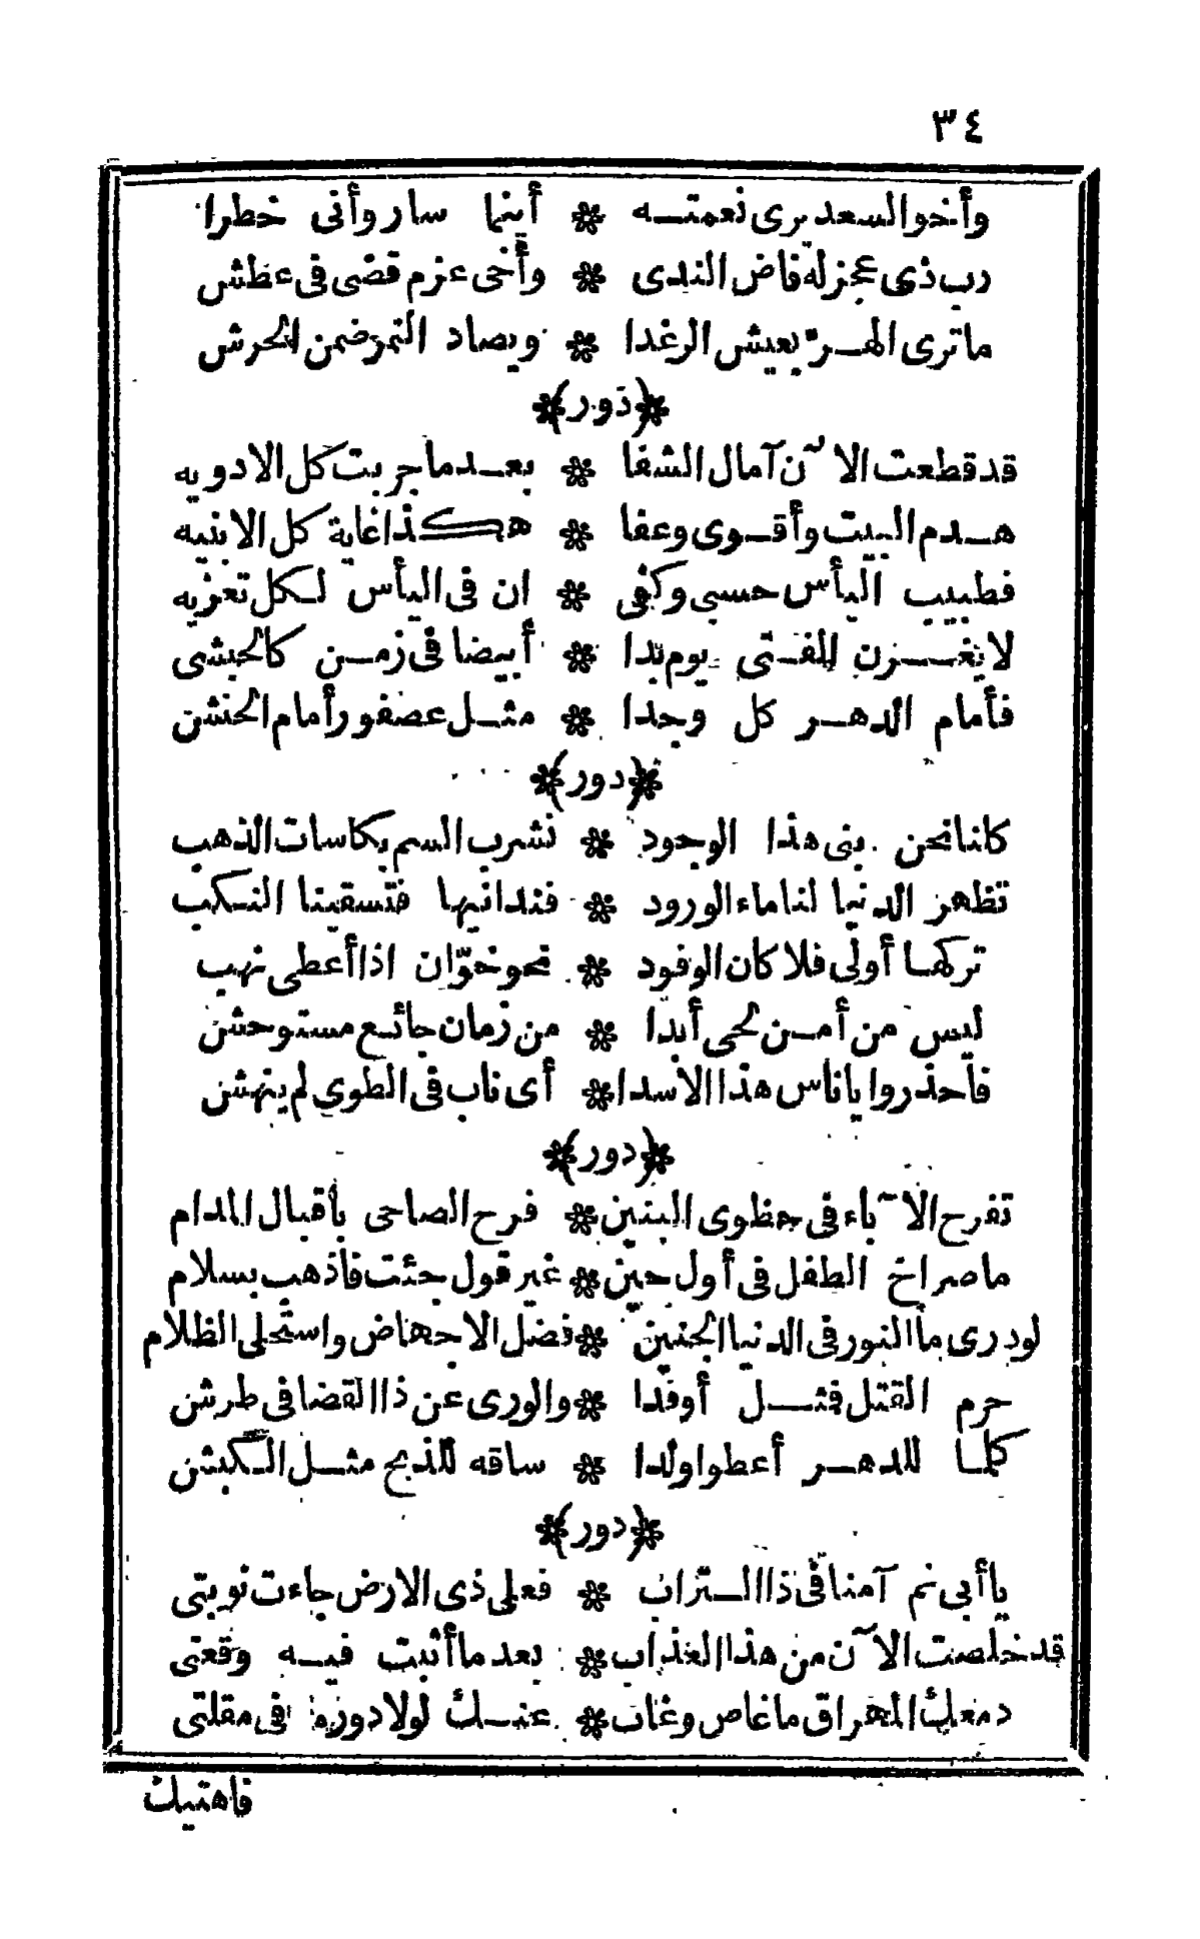 ٣٤
وأخو السعد يرى نعمته ❋ أينما سار وأنى خطرا
رب ذى عجز له فاض الندى ❋ وأخى عزم قضى فى عطش
ما ترى الهرّ بعيش الرغدا ❋ ويصاد النمر ضمن الحرش
❋(دور)❋
قد قطعت الآن آمال الشفا ❋ بعد ما جربت كل الادويه
هدم البيت وأقوى وعفا ❋ هكذا غاية كل الابنيه
فطبيب اليأس حسبى وكفى ❋ ان فى اليأس لكل تعزيه
لا يغرن الفتى يوم بدا ❋ أبيضا فى زمن كالحبشى
فأمام الدهر كل وجدا ❋ مثل عصفور أمام الحنش
❋(دور)❋
كانا نحن بنى هذا الوجود ❋ نشرب السم بكاسات الذهب
تظهر الدنيا لنا ماء الورود ❋ فندانيها فتسقينا النكب
تركها أولى فلا كان الوفود ❋ نحو خوّان اذا أعطى نهب
ليس من أمن لحى أبدا ❋ من زمان جائع مستوحش
فاحذروا ياناس هذا الاسدا ❋ أى ناب فى الطوى لم ينهش
❋(دور)❋
تفرح الآباء فى حظوى البنين ❋ فرح الصاحى باقبال المدام
ما صراخ الطفل فى أول حين ❋ غير قول جئت فاذهب بسلام
لو درى ما النور فى الدنيا الجنين ❋ فضل الاجهاض واستحلى الظلام
حرم القتل فثل أوفدا ❋ والورى عن ذا القضا فى طرش
كلما للدهر أعطوا ولدا ❋ ساقه للذبح مثل الكبش
❋(دور)❋
يا أبى نم آمنا فى ذا التراب ❋ فعلى ذى الارض جاءت نوبتى
قد خلصت الآن من هذا العذاب ❋ بعد ما أثبت فيه وقعتى
دمعك المهراق ما غاص وغاب ❋ عنك لولا دوره فى مقلتى
فاهنيك